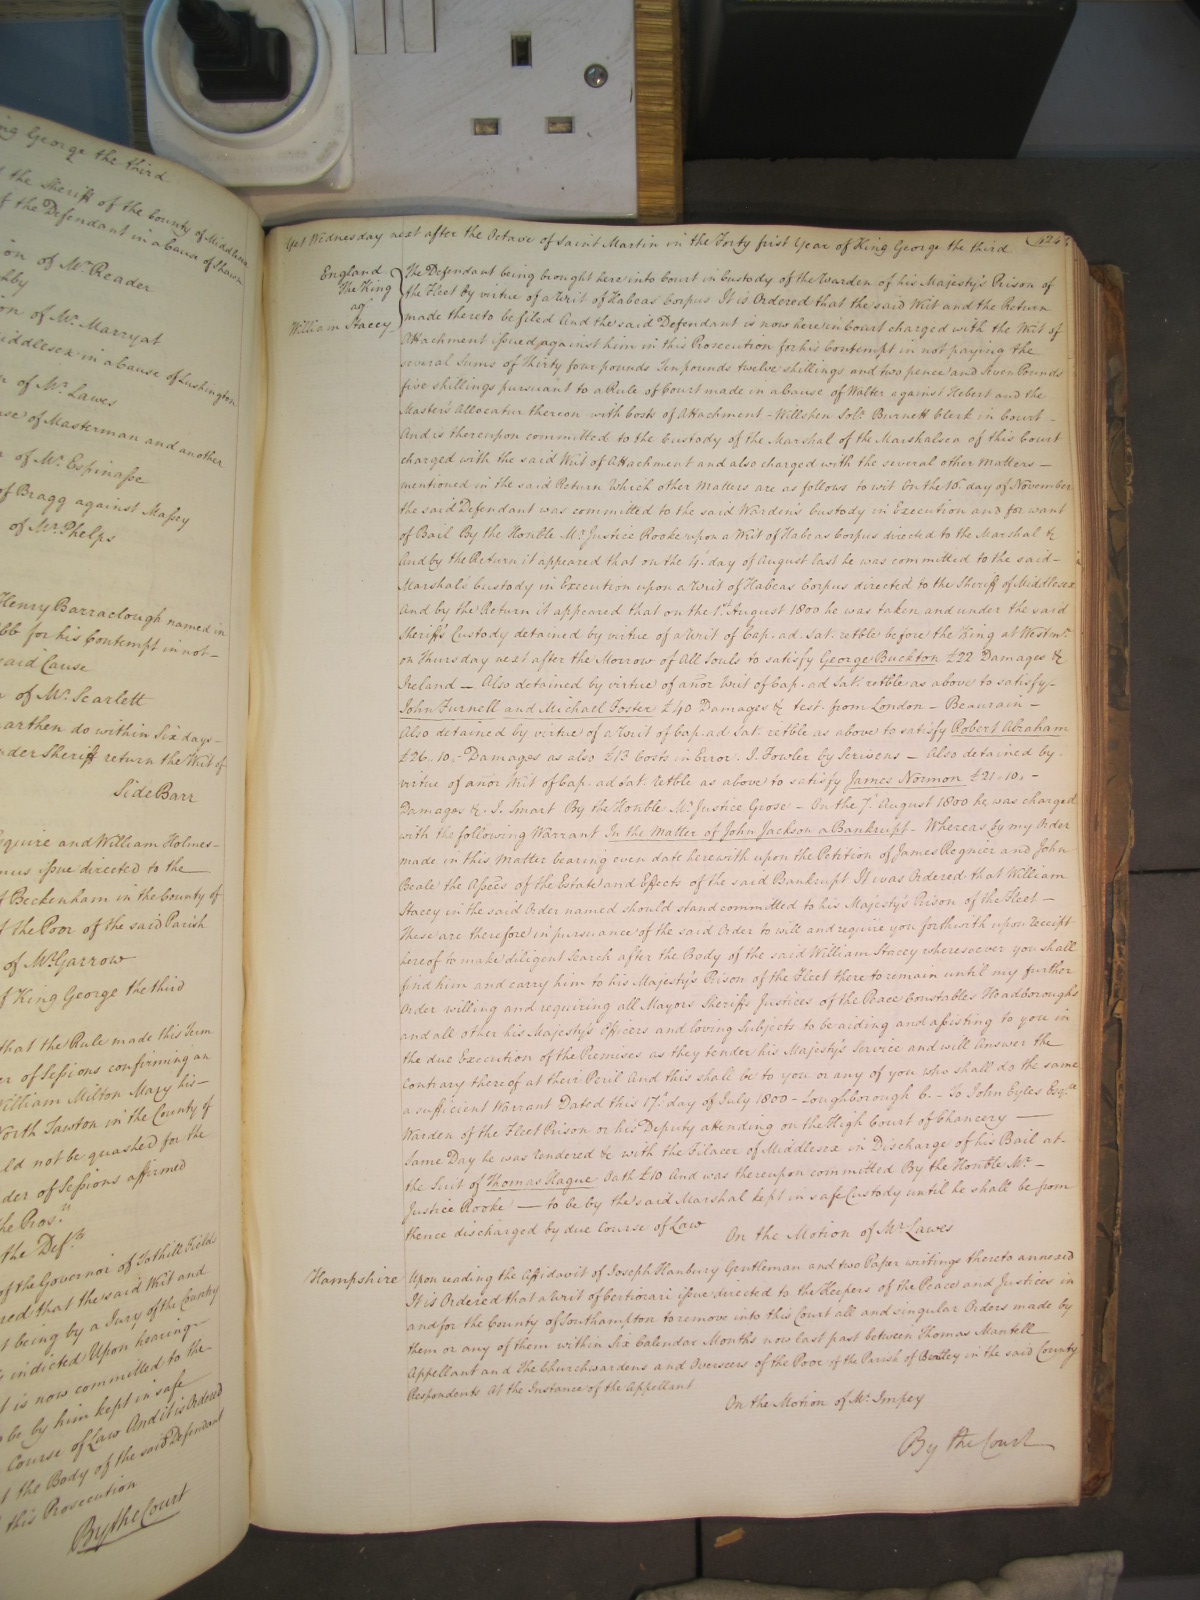 ng George the third
the Sheriff of the County of Middlesex
f the Defendant in a Cause of Shawson
ion of Mr. Reader
hby
on of Mr. Marryat
iddlesex in a Cause of Lushington
n of Mr. Lawes
use of Masterman and another
n of Mr. Espinasse
of Bragg against Massey
of Mr. Phelps
Henry Barraclough named in
bb for his Contempt in not
said Cause
n of Mr. Scarlett
arthen do within Six days
nder Sheriff return the Writ of
Side Barr
squire and William Holmes
mus issue directed to the
f Beckenham in the County of
f the Poor of the said Parish
of Mr Garrow
f King George the third
that the Rule made this Term
er of Sessions confirming an
William Milton Mary his
North Tawton in the County of
ld not be quashed for the
der of Sessions affirmed
the Pros.rs
the Def.ts
of the Governor of Tothill Fields
red that the said Writ and
t being by a Jury of the Country
indicted Upon hearing
t is now committed to the
be by him kept in safe
Course of Law And it is Ordered
t the Body of the said Defendant
this Prosecution
By the Court
Yet Wednesday next after the Octave of Saint Martin in the Forty first Year of King George the third
England
The King
agt
William Stacey
The Defendant being brought here into Court in Custody of the Warden of his Majesty's Prison of
the Fleet by virtue of a Writ of Habeas Corpus It is Ordered that the said Writ and the Return
made thereto be filed And the said Defendant is now here in Court charged with the Writ of
Attachment issued against him in this Prosecution for his Contempt in not paying the
several Sums of Thirty four pounds Ten pounds twelve shillings and two pence and Seven Pounds
five shillings pursuant to a Rule of Court made in a Cause of Walter against Hebert and the
Master's Allocatur thereon with Costs of Attachment - Willshen Sol.r Burnett Clerk in Court -
And is thereupon committed to the Custody of the Marshal of the Marshalsea of this Court
charged with the said Writ of Attachment and also charged with the several other Matters -
mentioned in the said Return Which other Matters are as follows to wit On the 10th day of November
the said Defendant was committed to the said Warden's Custody in Execution and for want
of Bail By the Honble Mr. Justice Rooke upon a Writ of Habeas Corpus directed to the Marshal &c
And by the Return it appeared that on the 4th day of August last he was committed to the said -
Marshal's Custody in Execution upon a Writ of Habeas Corpus directed to the Sheriff of Middlesex
And by the Return it appeared that on the 1st August 1800 he was taken and under the said
Sheriff's Custody detained by virtue of a Writ of Cap. ad. Sat. retble before the King at Westmr.
on Thursday next after the Morrow of All Souls to satisfy George Buckton £22 Damages &c
Ireland - Also detained by virtue of anor Writ of Cap. ad Sat. retble as above to satisfy -
John Furnell and Michael Foster £40 Damages &c test. from London - Beaurain -
Also detained by virtue of a Writ of Cap. ad Sat. retble as above to satisfy Robert Abraham
£26..10.- Damages as also £13 Costs in Error. I. Fowler by Scrivens - Also detained by
virtue of anor Writ of Cap. ad Sat. retble as above to satisfy James Normon £21..10.-
Damages &c. I. Smart By the Honble Mr. Justice Grose - On the 7th August 1800 he was charged
with the following Warrant In the Matter of John Jackson a Bankrupt - Whereas by my Order
made in this Matter bearing even date herewith upon the Petition of James Regnier and John
Beale the Assees of the Estate and Effects of the said Bankrupt It was Ordered that William
Stacey in the said Order named should stand committed to his Majesty's Prison of the Fleet -
These are therefore in pursuance of the said Order to will and require you forthwith upon receipt
hereof to make diligent Search after the Body of the said William Stacey wheresoever you shall
find him and carry him to his Majesty's Prison of the Fleet there to remain until my further
Order willing and requiring all Mayors Sheriffs Justices of the Peace Constables Headboroughs
and all other his Majesty's Officers and loving Subjects to be aiding and assisting to you in
the due Execution of the Premises as they tender his Majesty's Service and will Answer the
contrary thereof at their Peril And this shall be to you or any of you who shall do the same
a sufficient Warrant Dated this 17th day of July 1800 - Loughborough C. - To John Eyles Esqre
Warden of the Fleet Prison or his Deputy attending on the High Court of Chancery -
Same Day he was rendered &c with the Filacer of Middlesex in Discharge of his Bail at -
the Suit of Thomas Hague Oath £10 And was thereupon committed By the Honble Mr. -
Justice Rooke - to be by the said Marshal kept in safe Custody until he shall be from
thence discharged by due Course of Law
On the Motion of Mr. Lawes
Hampshire
Upon reading the Affidavit of Joseph Hanbury Gentleman and two Paper writings thereto annexed
It is Ordered that a Writ of Certiorari issue directed to the Keepers of the Peace and Justices in
and for the County of Southampton to remove into this Court all and singular Orders made by
them or any of them within Six Calendar Months now last past between Thomas Mantell
Appellant and The Churchwardens and Overseers of the Poor of the Parish of Bentley in the said County
Respondents At the Instance of the Appellant
On the Motion of Mr. Impey
By the Court